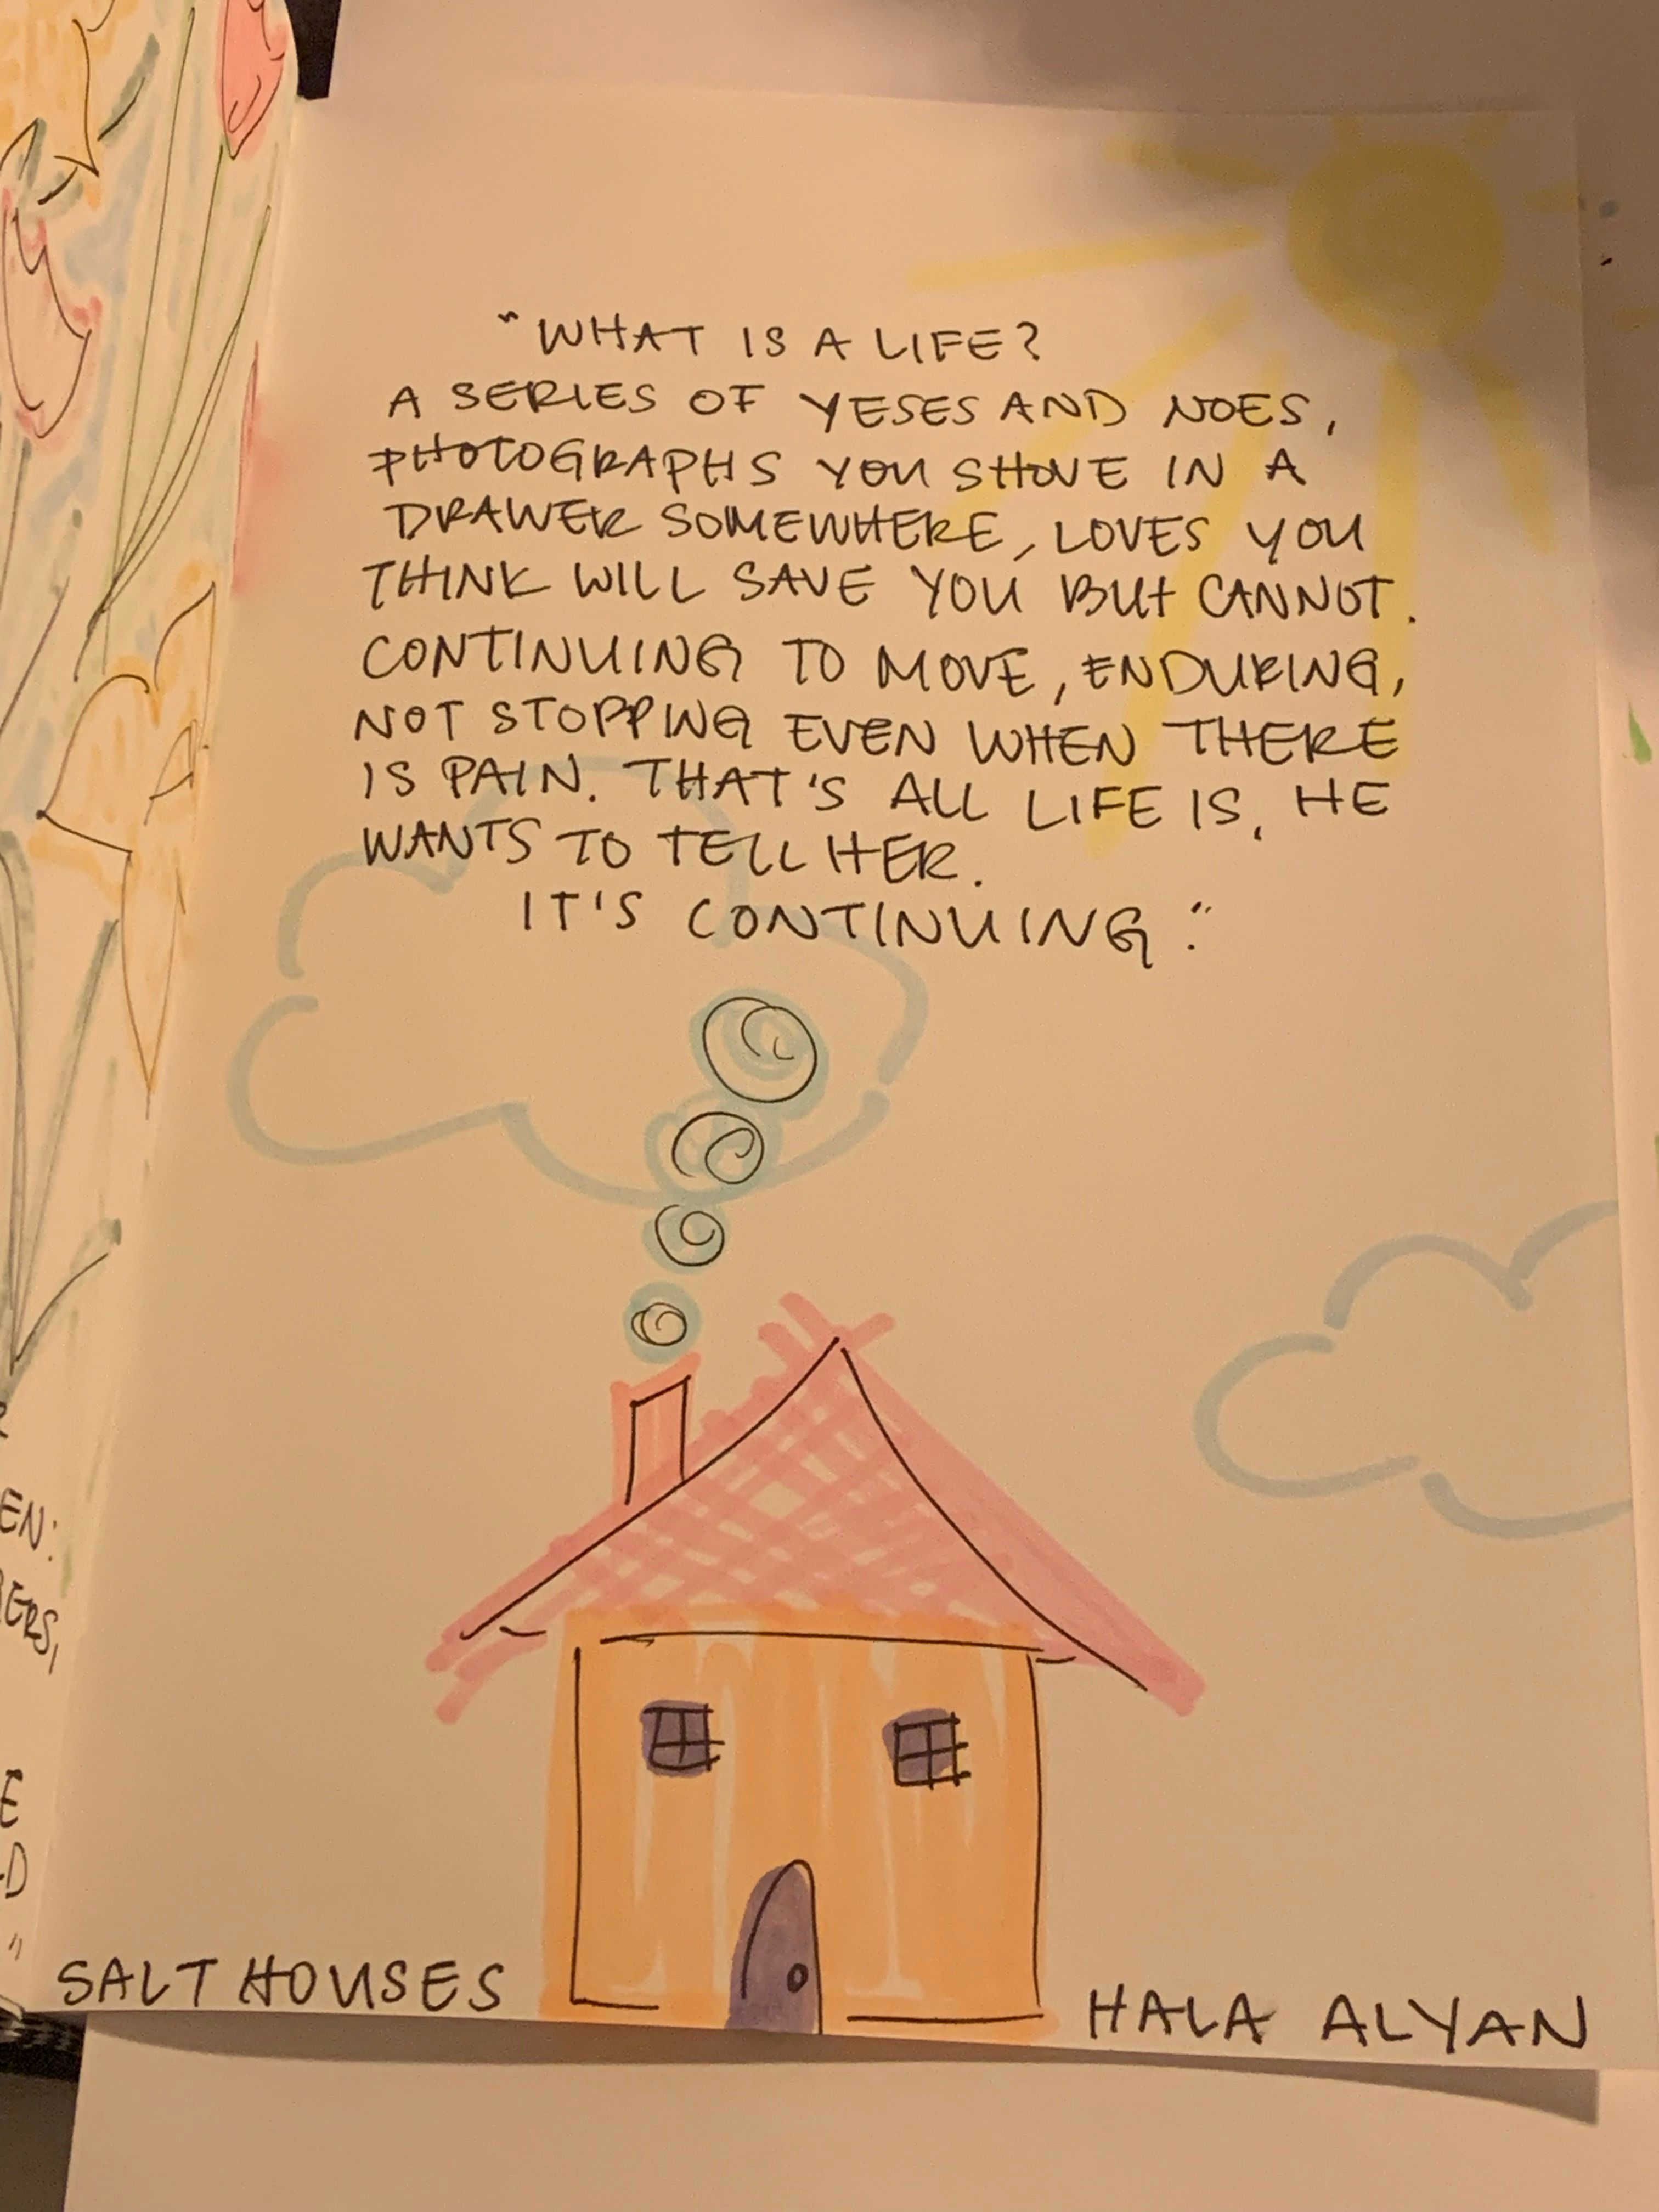 "WHAT IS A LIFE?
A SERIES OF YESES AND NOES,
PHOTOGRAPHS YOU SHOVE IN A
DRAWER SOMEWHERE, LOVES YOU
THINK WILL SAVE YOU BUT CANNOT.
CONTINUING TO MOVE, ENDURING,
NOT STOPPING EVEN WHEN THERE
IS PAIN. THAT'S ALL LIFE IS, HE
WANTS TO TELL HER.
IT'S CONTINUING."
SALT HOUSES
HALA ALYAN